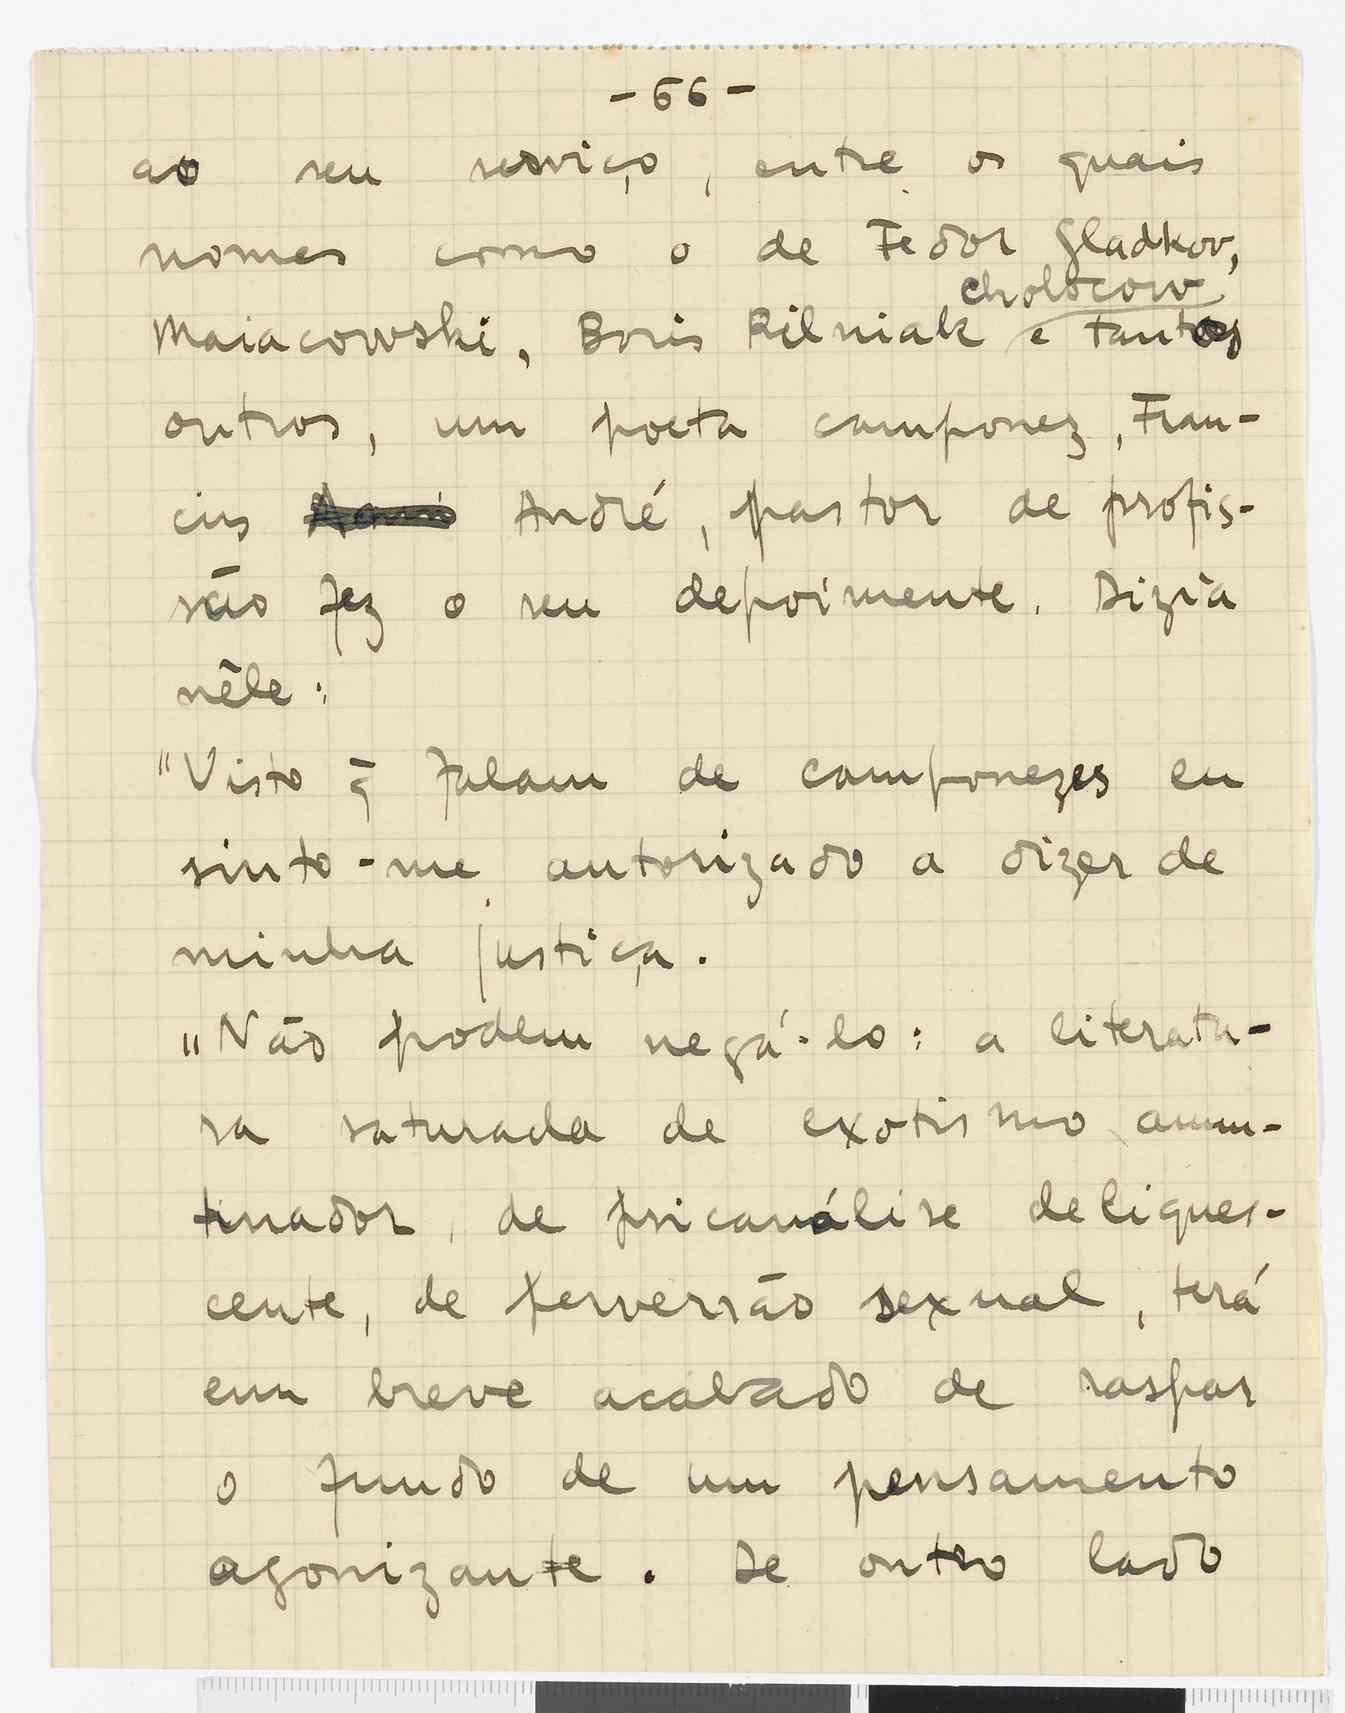 - 66 -
ao seu serviço, entre os quais
nomes como o de Fedor Gladkov,
cholocow
Maiacowski, Boris Pilniak e tantos
outros, um poeta camponez, Fran-
cis André, pastor de profis-
são fez o seu depoimente. Dizia
nêle:
"Visto q̃ falam de camponezes eu
sinto-me autorizado a dizer de
minha justiça.
"Não podem negá-lo: a literatu-
ra saturada de exotismo amu-
tinador, de psicanálise deliques-
cente, de perversão sexual, terá
em breve acabado de raspar
o fundo de um pensamento
agonizante. De outro lado